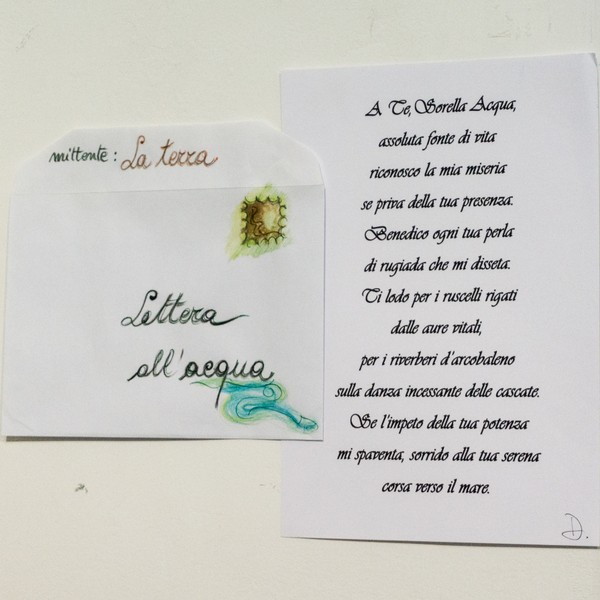 mittente: La terra
Lettera
all'acqua
A Te, Sorella Acqua,
assoluta fonte di vita
riconosco la mia miseria
se priva della tua presenza.
Benedico ogni tua perla
di rugiada che mi disseta.
Ti lodo per i ruscelli rigati
dalle aure vitali,
per i riverberi d'arcobaleno
sulla danza incessante delle cascate.
Se l'impeto della tua potenza
mi spaventa, sorrido alla tua serena
corsa verso il mare.
D.